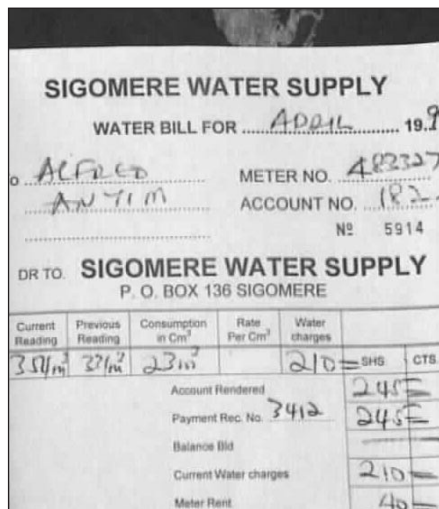 SIGOMERE WATER SUPPLY
WATER BILL FOR ...APRIL... 19..9
o ALFRED METER NO. 483327
ANYIM ACCOUNT NO. 182
Nº 5914
DR TO. SIGOMERE WATER SUPPLY
P. O. BOX 136 SIGOMERE
Current Reading Previous Reading Consumption in Cm³ Rate Per Cm³ Water charges
23m³ 210= SHS CTS
Account Rendered 245=
Payment Rec. No. 3412 245=
Balance Bld
Current Water charges 210=
Meter Rent 40=